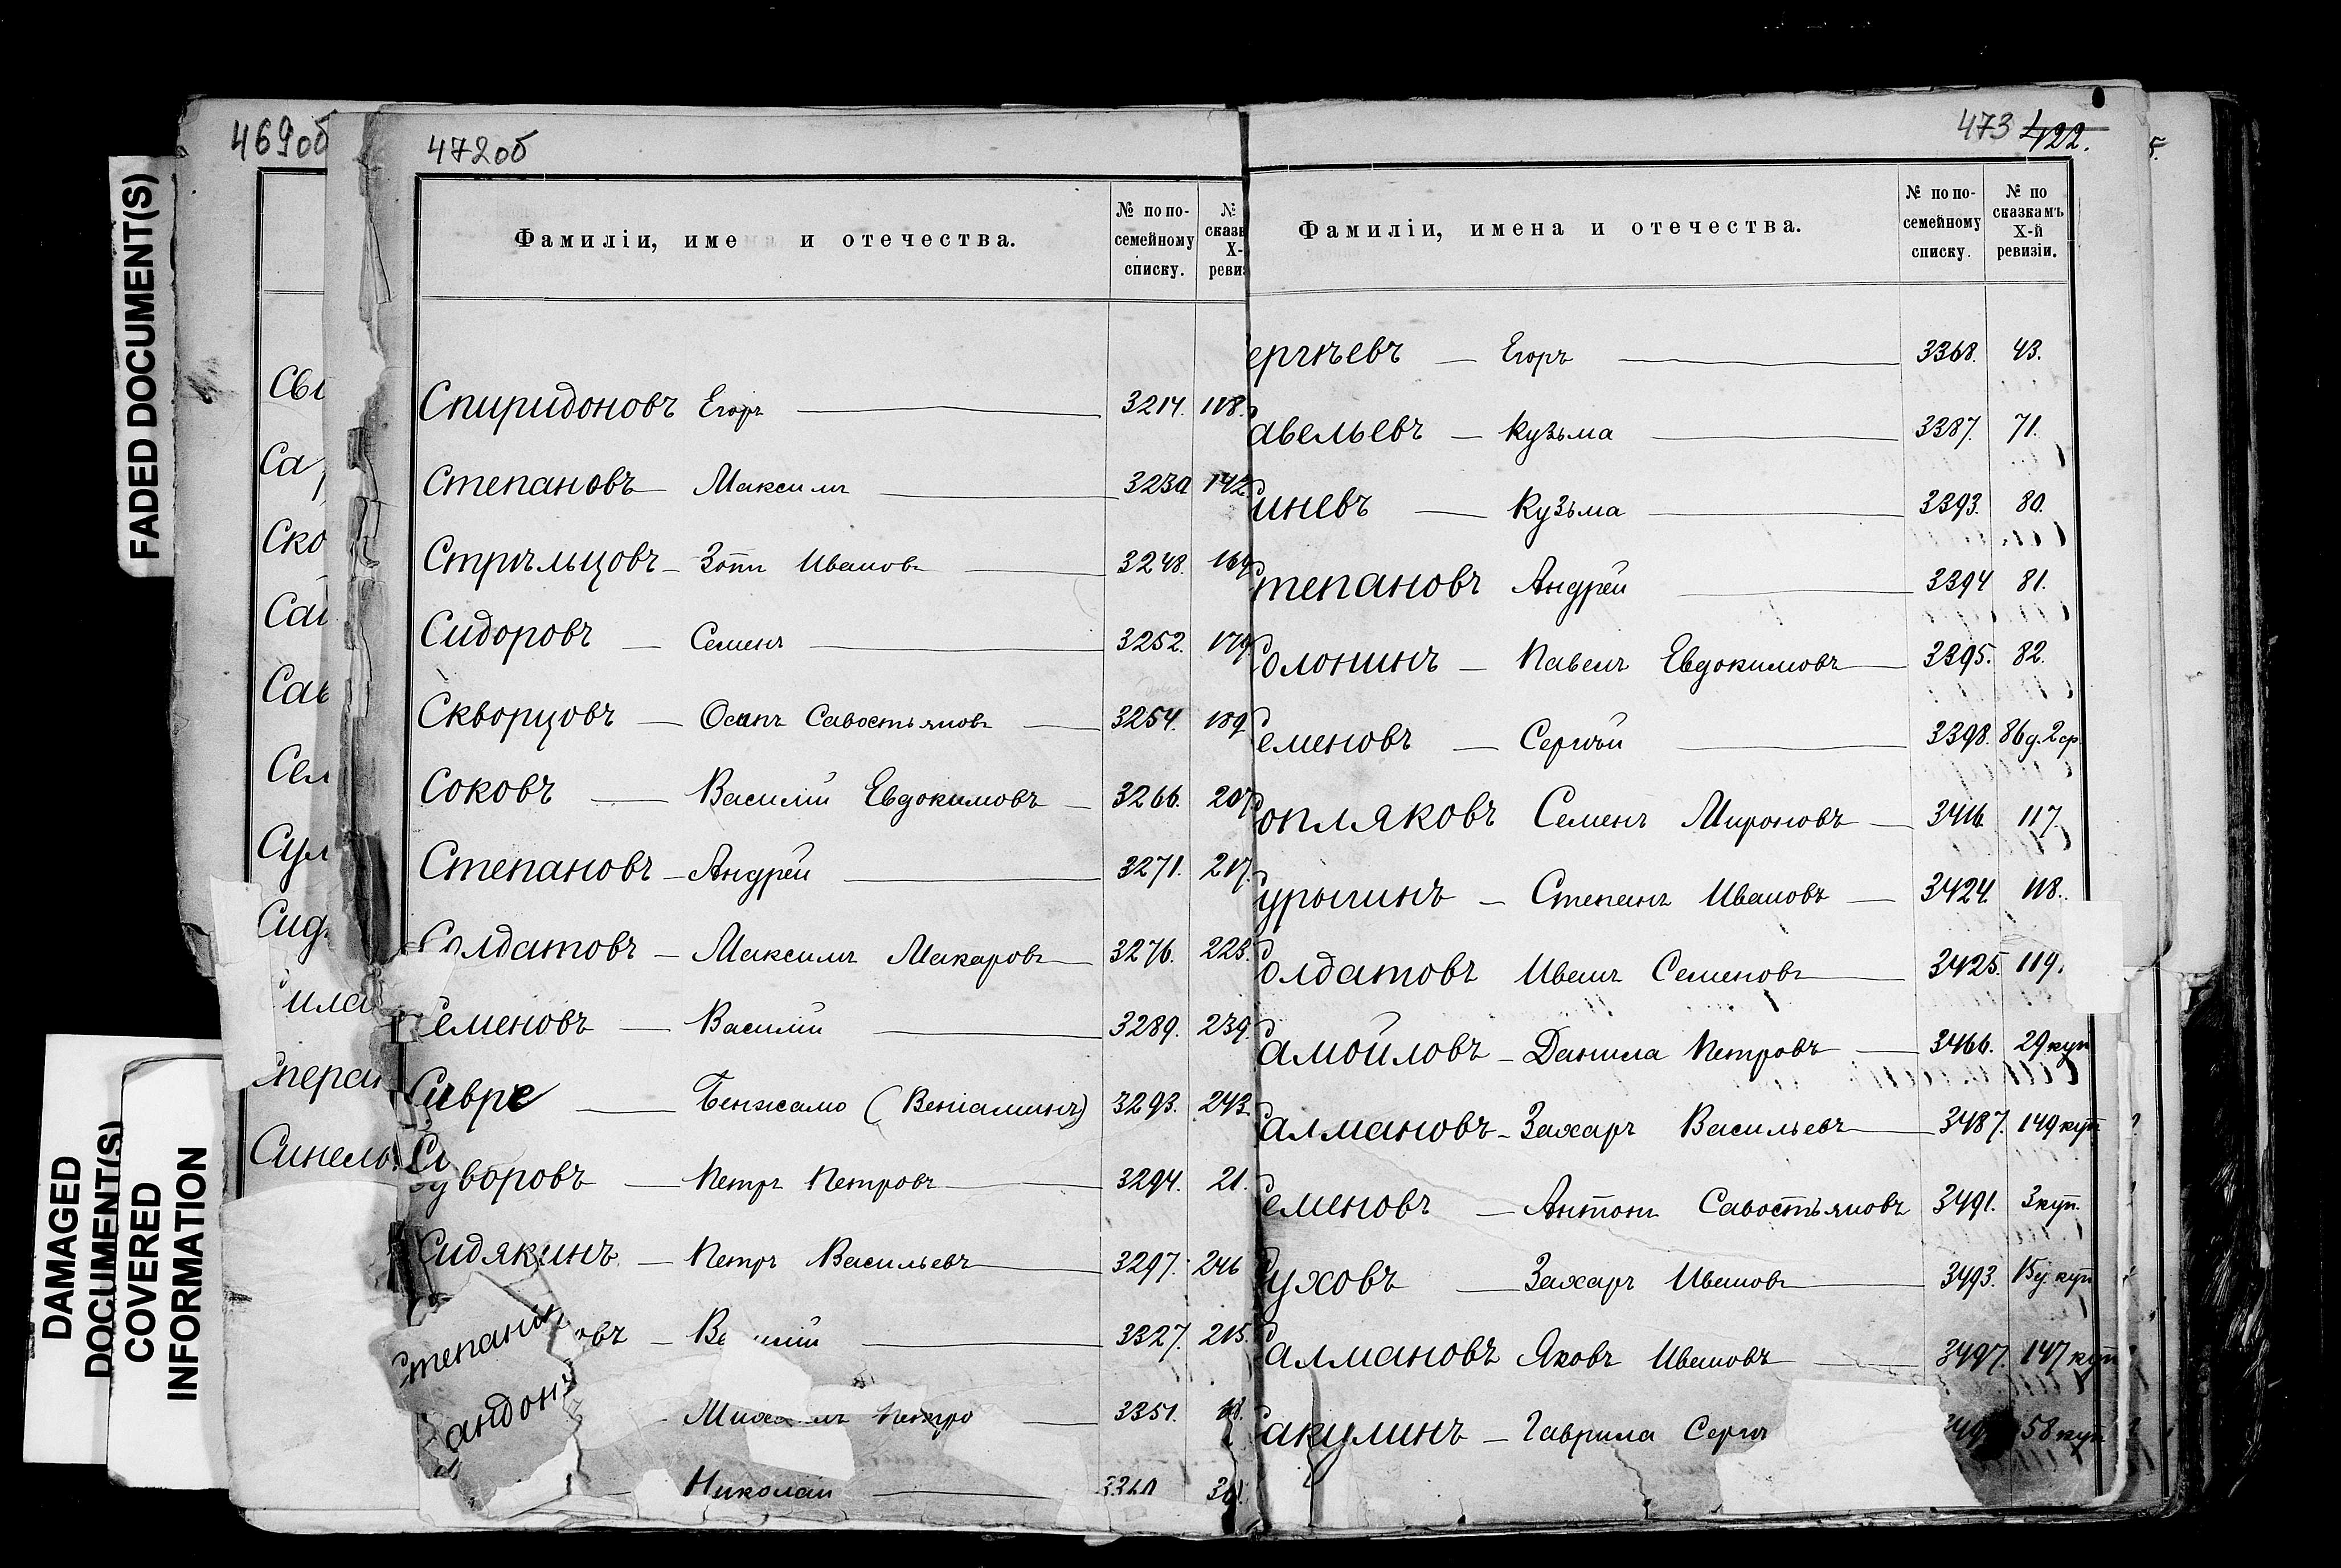 FADED DOCUMENT(S)
DAMAGED
DOCUMENT(S)
COVERED
INFORMATION
469об
Сы
Са
Ско
Сал
Сав
Сел
Сул
Сид
ила
пера
Синель
472об
Фамиліи, имена и отечества. № по по-семейному списку. № сказк X- ревиз
Спиридоновъ Егоръ 3214. 118.
Степановъ — Максимъ 3230 142
Стрѣльцовъ — Зотъ Ивановъ 3248. 169
Сидоровъ — Семенъ 3252. 179
Скворцовъ — Осипъ Савостьяновъ 3254. 189
Соковъ — Василій Евдокимовъ — 3266. 207
Степановъ — Андрей 3271. 217.
Солдатовъ — Максимъ Макаровъ 3276. 223.
Семеновъ — Василій 3289. 239.
Сивре — Бенжамо (Веніаминъ) 3293. 243.
Суворовъ — Петръ Петровъ 3294. 21.
Сидякинъ — Петръ Васильевъ 3297. 246
Степан овъ — Ва илій 3327. 215.
андон Миха лъ Петро 3351.
Николай 3360
473 422.
Фамиліи, имена и отечества. № по по-семейному списку. № по сказкамъ X-й ревизіи.
ергѣевъ — Егоръ 3368. 43.
авельевъ — Кузьма 3387. 71.
иневъ — Кузьма 3393. 80.
тепановъ Андрей 3394 81.
олонинъ — Павелъ Евдокимовъ 3395. 82.
еменовъ — Сергѣй 3398. 86 д. 2 ср.
опляковъ Семенъ Мироновъ — 3416. 117.
урыгинъ — Степанъ Ивановъ — 3424 118.
олдатовъ Иванъ Семеновъ 3425. 119.
амойловъ — Данила Петровъ — 3466. 29 куп
алмановъ — Захаръ Васильевъ 3487. 149 куп
еменовъ — Антонъ Савостьяновъ 3491. 3 куп.
уховъ — Захаръ Ивановъ 3493. 15 у. куп
алмановъ Яковъ Ивановъ — 3497. 147 куп
акулинъ — Гаврила Сергѣ 349 58 куп